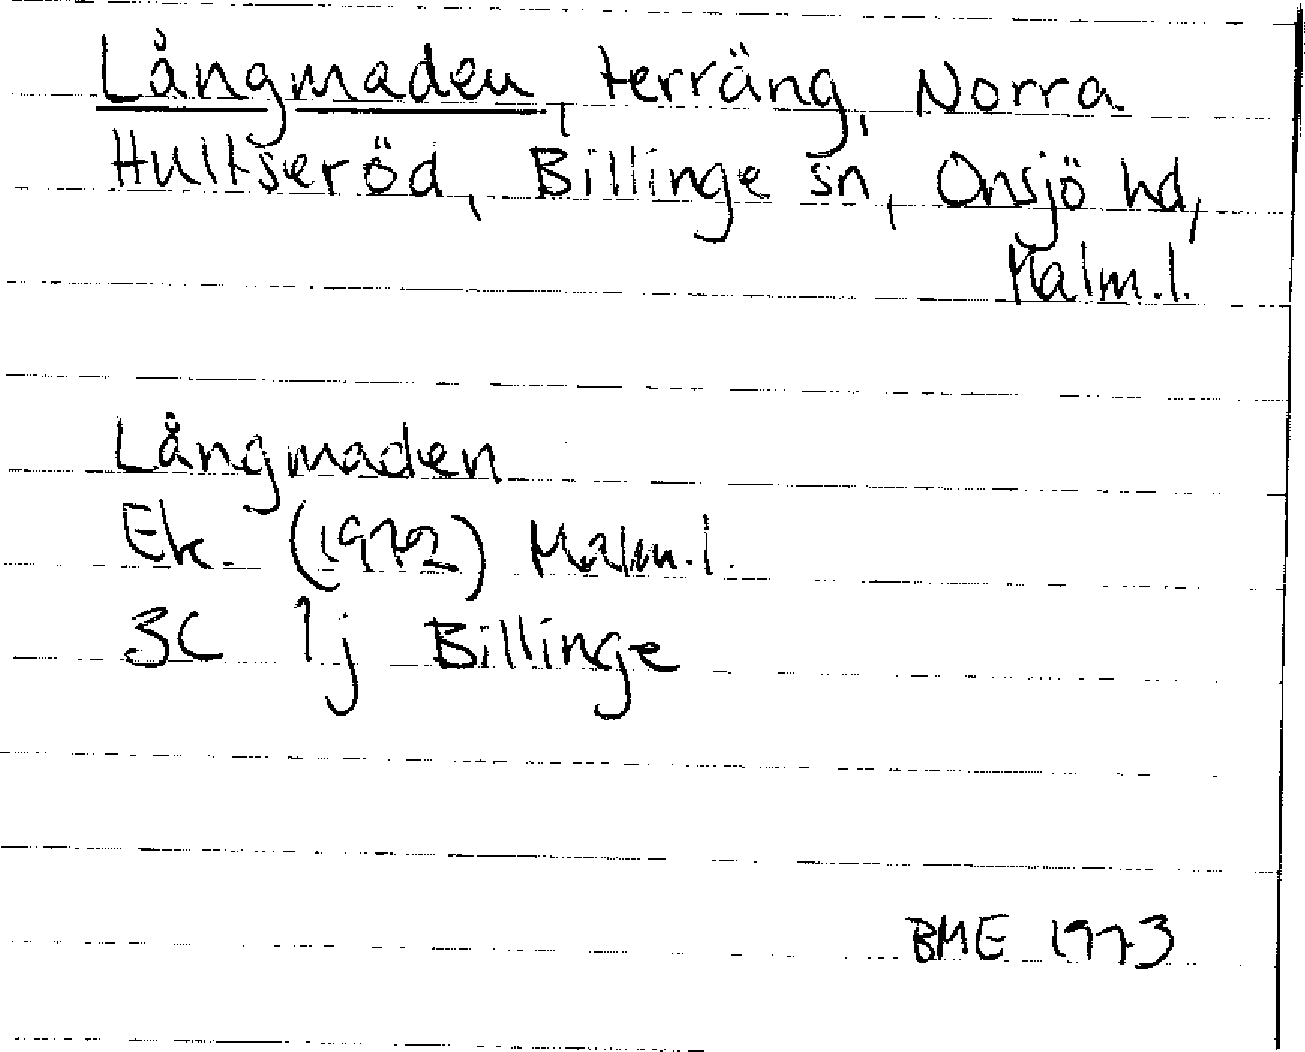 Långmaden, terräng, Norra
Hultseröd, Billinge sn, Onsjö hd,
Malm.l.
Långmaden
Ek. (1972) Malm.l.
3C 1j Billinge
BME 1973